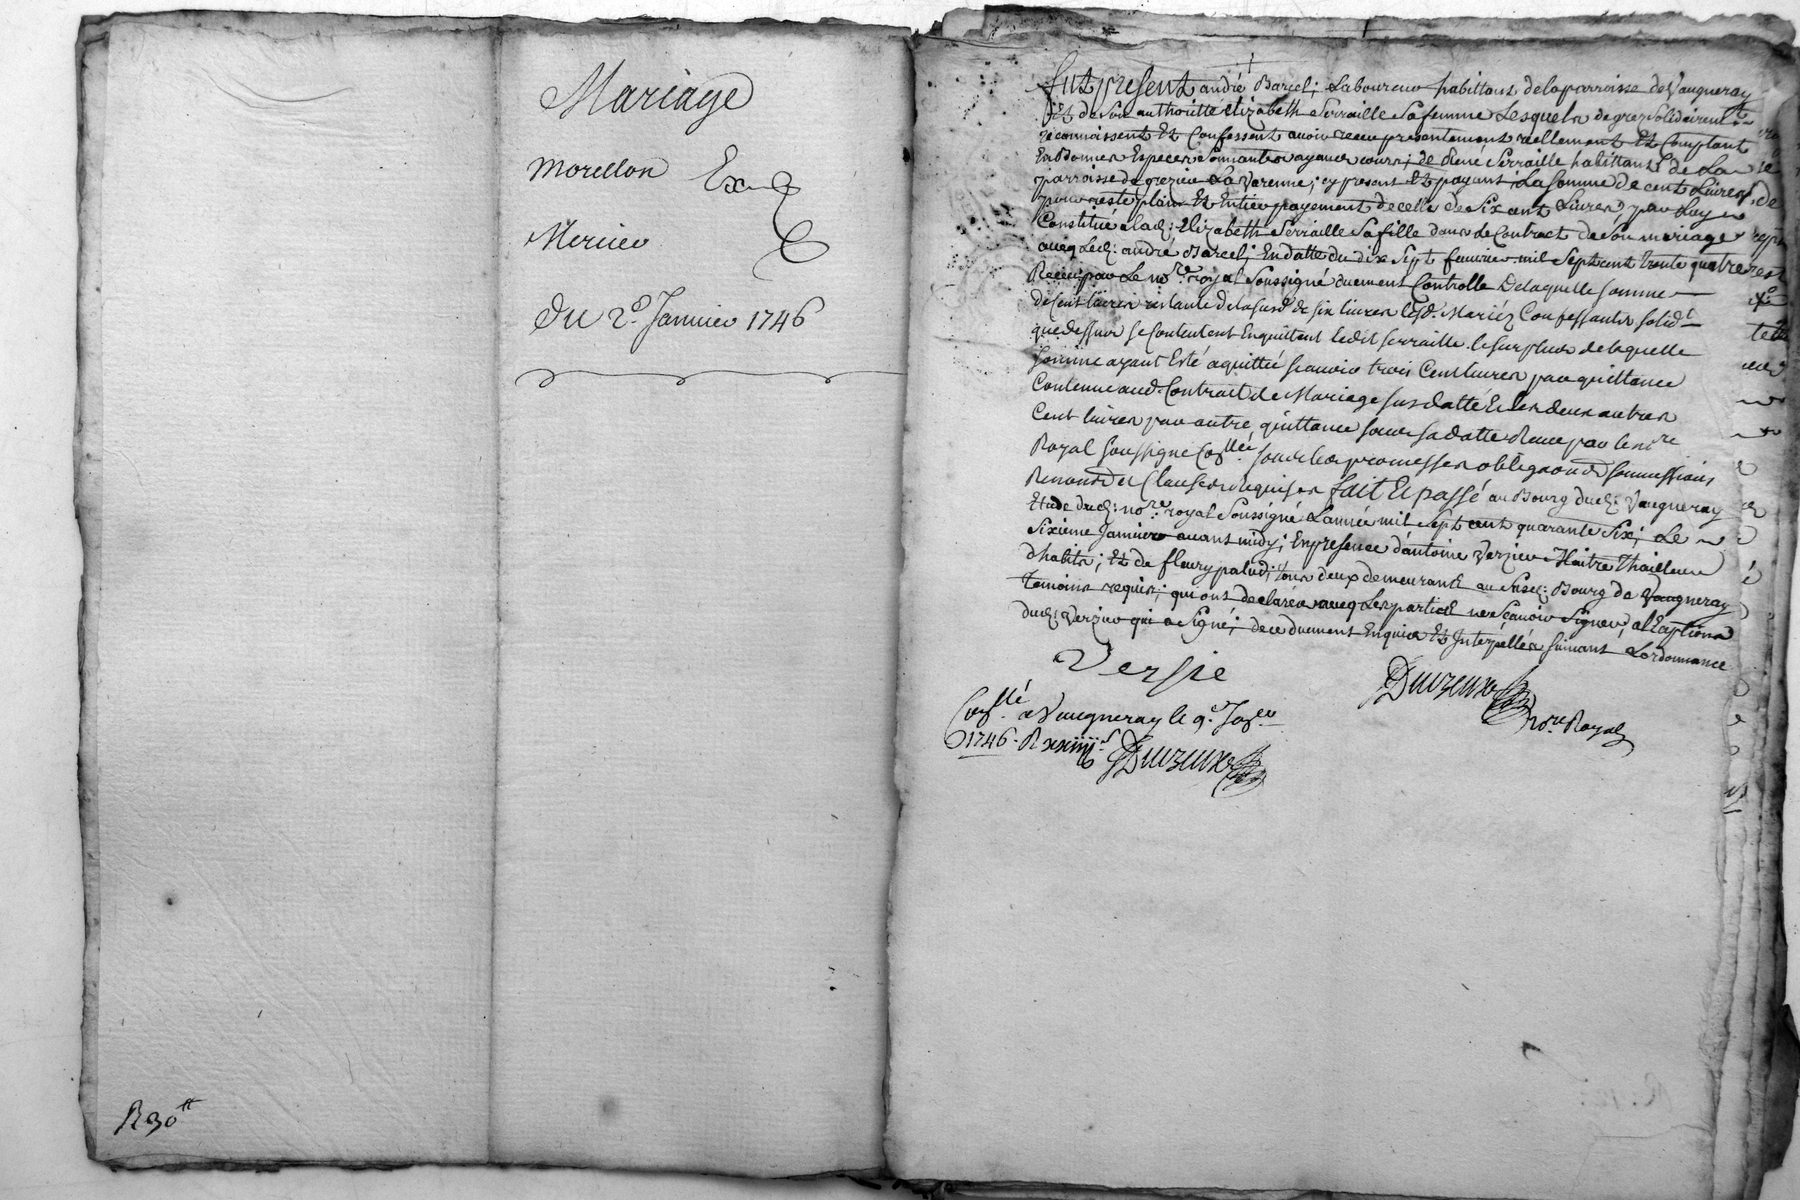 Mariage
Morellon Ex
Mercier
Du 2e. Janvier 1746
R 30tt
Fut present andré Barcel; Laboureur habittant de la parroisse de Vaugneray
et de son authoritté Elizabeth Serraille Sa femme Lesquels de grez Solidairemt.
reconnoissent Et Confessent avoir receu presentement reellement Et Comptant
En Bonnes Especes Sonnantes ayance cours; de René Serraille habittant de La
parroisse de grezieu La Varenne; cy present Et payant; La Somme de cent Livres
pour reste plain Et Entier payement de celle de Six cent Livres, par Luy
Constitué a lad: Elizabeth Serraille Sa fille dans Le Contract de Son mariage
avecq Led: andré Barcel; En datte du dix Sept fevrier mil Sept cent trente quatre
Receu par Le nore. royal Soussigné duement Controllé De laquelle somme
de Cent livres restante de la susd. de six livres lesd. Mariéz Confessantes solidt.
que dessus se Contentent En quittent ledit serraille le surplus de laquelle
somme ayant Esté aquittée scavoir trois Cent livres par quittance
Contenue aud. Contract de Mariage sus datté Et les deux autres
Cent livres par autre quittance sous sa datte Receue par le nore
Royal soussigné Collée sous les promesses obligaons soumissions
Renonns Et Clauses Requises fait Et passé au Bourg dud: Vaugneray
Etude dud: nore. royal Soussigné L'année mil Sept cent quarante Six; Le
Sixieme Janvier avant midy; En presence d'antoine Verzieu Maitre Thailleur
d'habits; Et de fleury palud; tous deux demeurant au Susd: Bourg de Vaugneray
Temoins requis; qui ont declarés avecq Les parties ne Scavoir Signer, a l'Exception
dud: Verzieu qui a Signé; de ce duement Enquis Et Interpellés suivant L'ordonnance
Versie
Duvzeux
Nore. Royal
Collé a Vaugneray le 9e. Janer
1746. R xxiiijs
Duvzeux